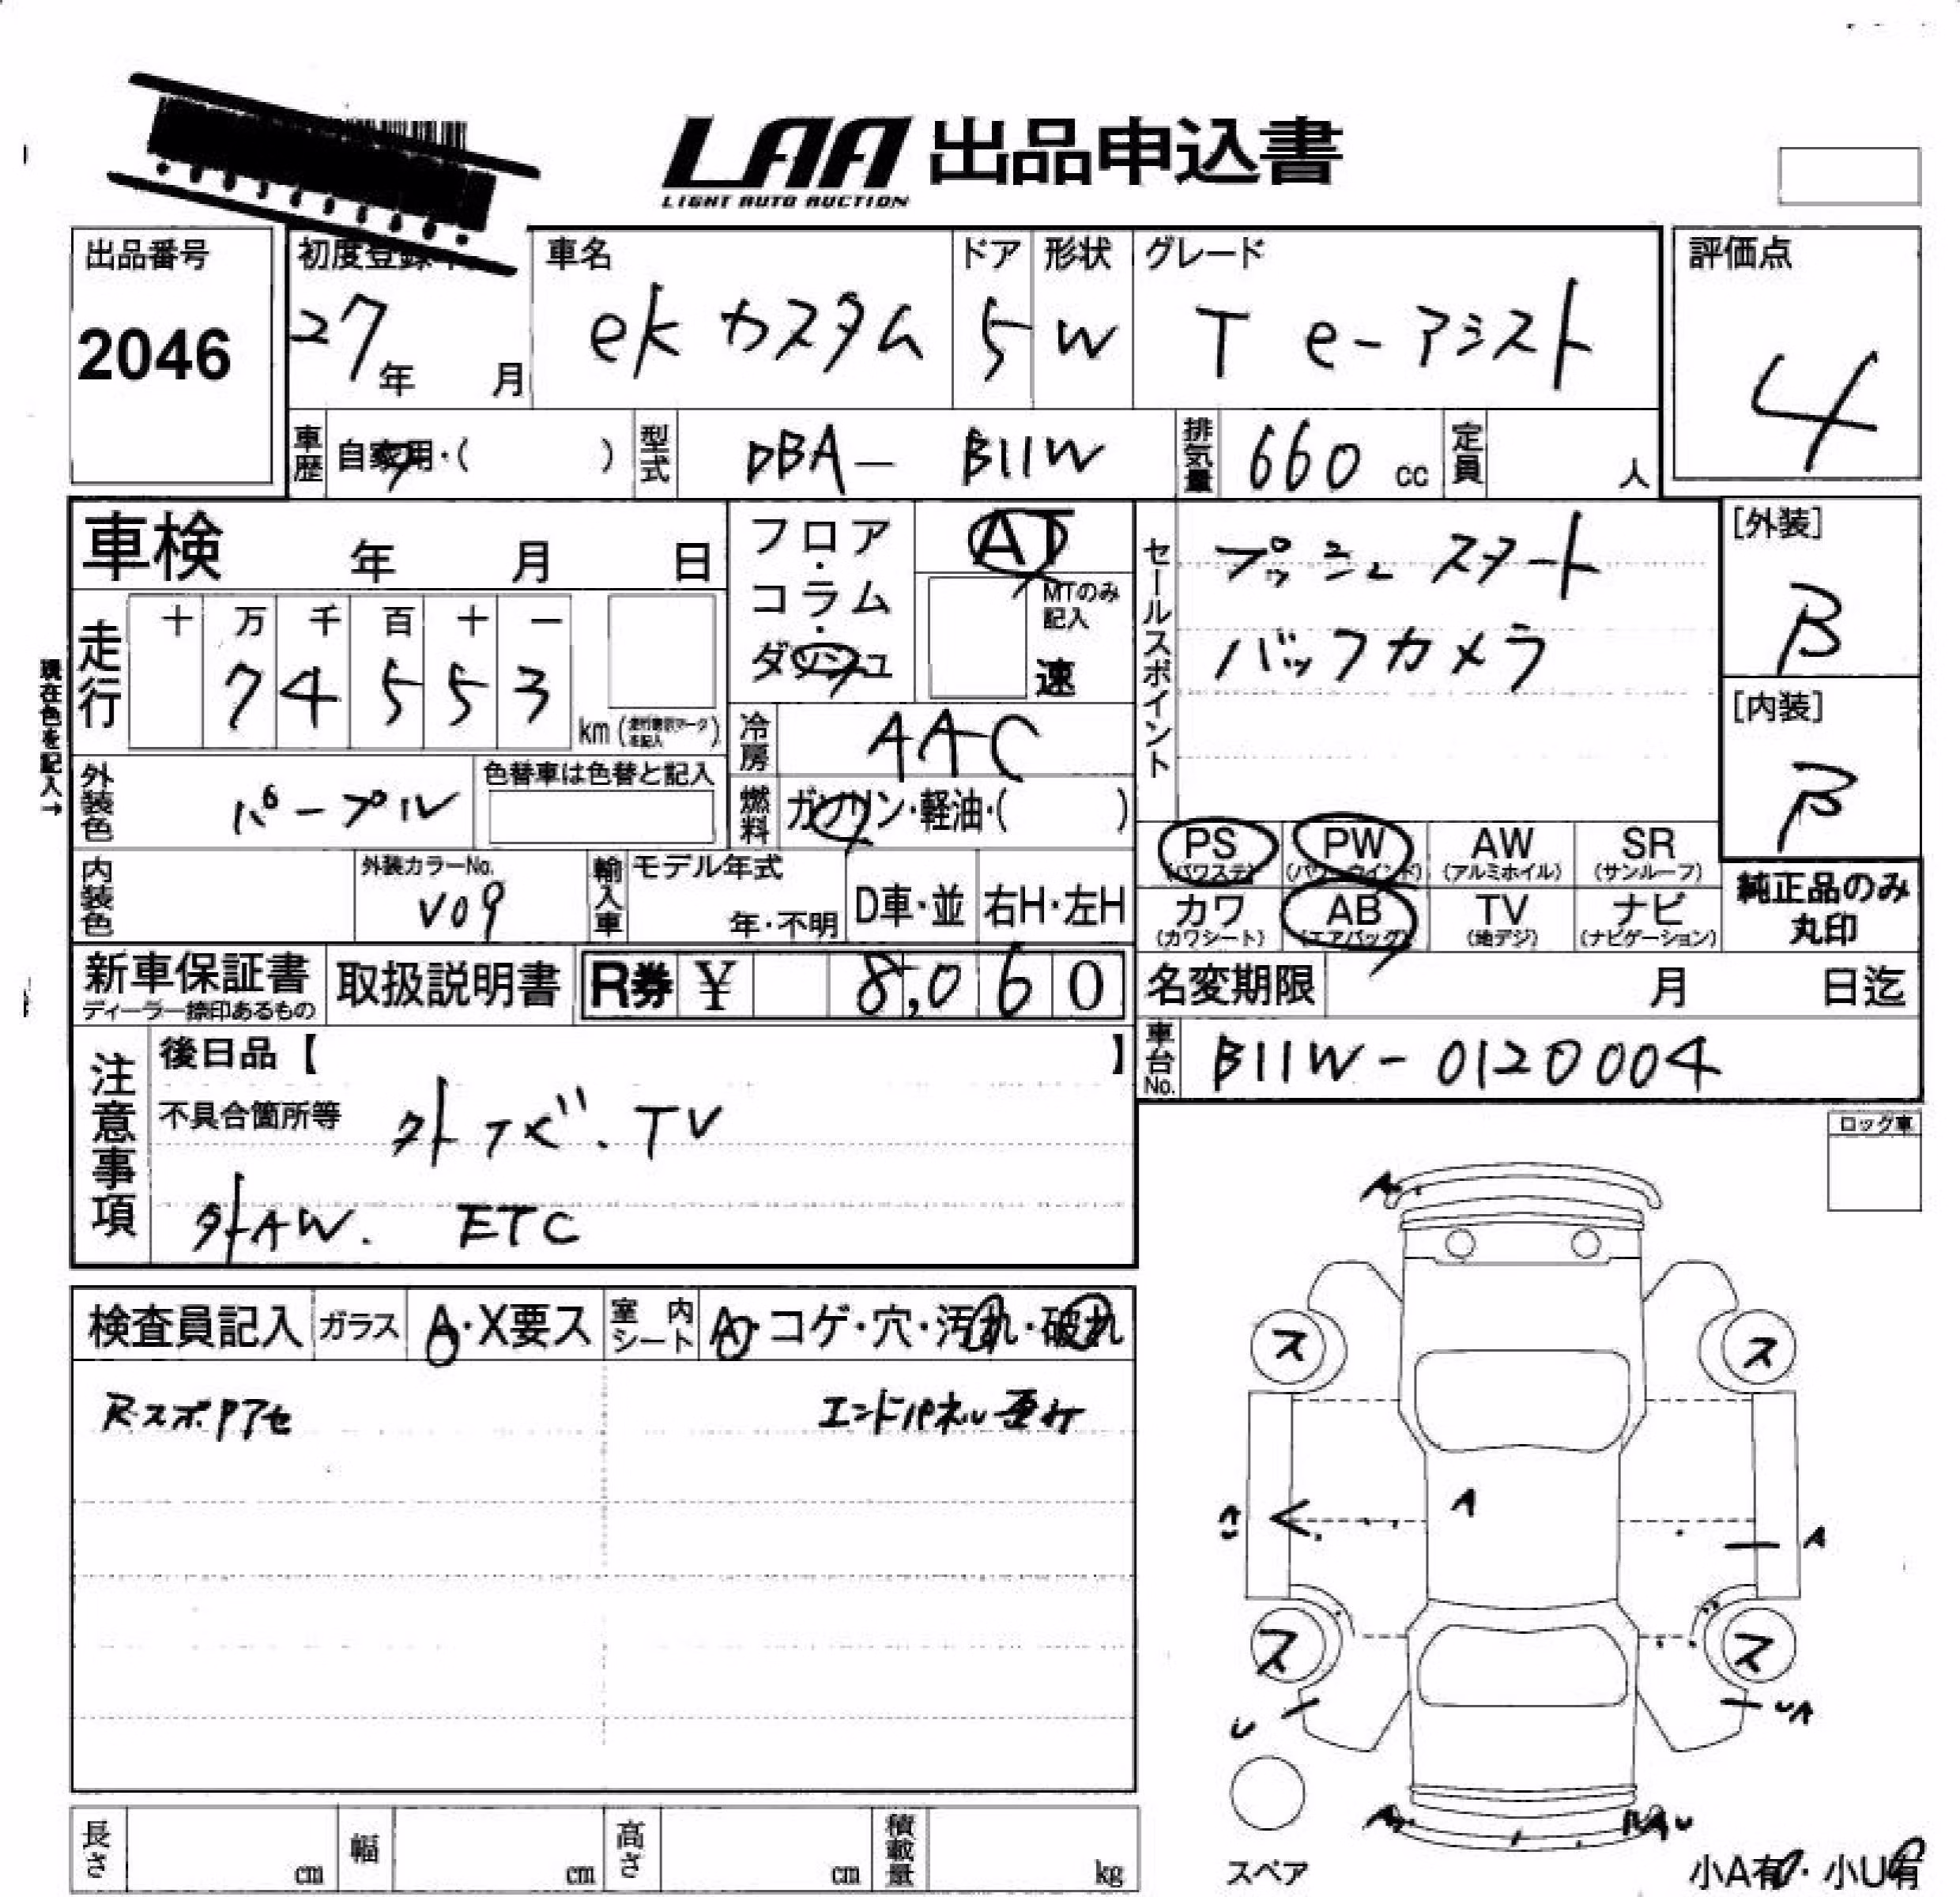 LAA 出品申込書
LIGHT AUTO AUCTION
出品番号
2046
初度登録
27年 月
車名
ek カスタム
ドア
5
形状
W
グレード
T e-アシスト
評価点
4
車歴 自家用・( )
型式 DBA- B11W
排気量 660 cc
定員 人
車検 年 月 日
フロア・コラム・ダッシュ
AT
MTのみ記入
速
セールスポイント
プッシュスタート
バックカメラ
[外装]
B
[内装]
B
現在色を記入→
走行
十 万 千 百 十 一
7 4 5 5 3
km
冷房 AAC
外装色 パープル
色替車は色替と記入
燃料 ガソリン・軽油・( )
PS (パワステ)
PW (パワーウインド)
AW (アルミホイル)
SR (サンルーフ)
カワ (カワシート)
AB (エアバッグ)
TV (地デジ)
ナビ (ナビゲーション)
純正品のみ
丸印
内装色
外装カラーNo.
V09
輸入車
モデル年式
年・不明
D車・並
右H・左H
新車保証書
ディーラー捺印あるもの
取扱説明書
R券 ¥ 8,060
名変期限 月 日迄
車台No. B11W-0120004
注意事項
後日品【 】
不具合箇所等 外ナビ.TV
外AW. ETC
ロック車
検査員記入
ガラス A・X要ス
室内シート A・コゲ・穴・汚れ・破れ
エンドパネル
A
ス ス
A
A
ス ス
U UA
A
スペア
小A有・小U有
長さ cm
幅 cm
高さ cm
積載量 kg